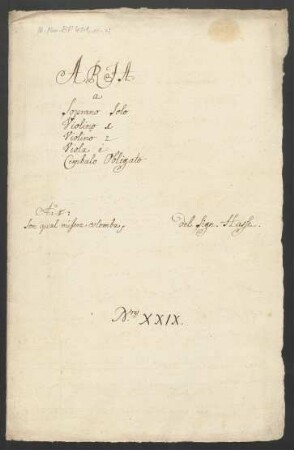 ARIA
a
Soprano Solo
Violino 1
Violino 2
Viola è
Cimbalo Obligato
Aria:
Son qual misera colomba,
del Sign. Hasse.
Nro XXIX.